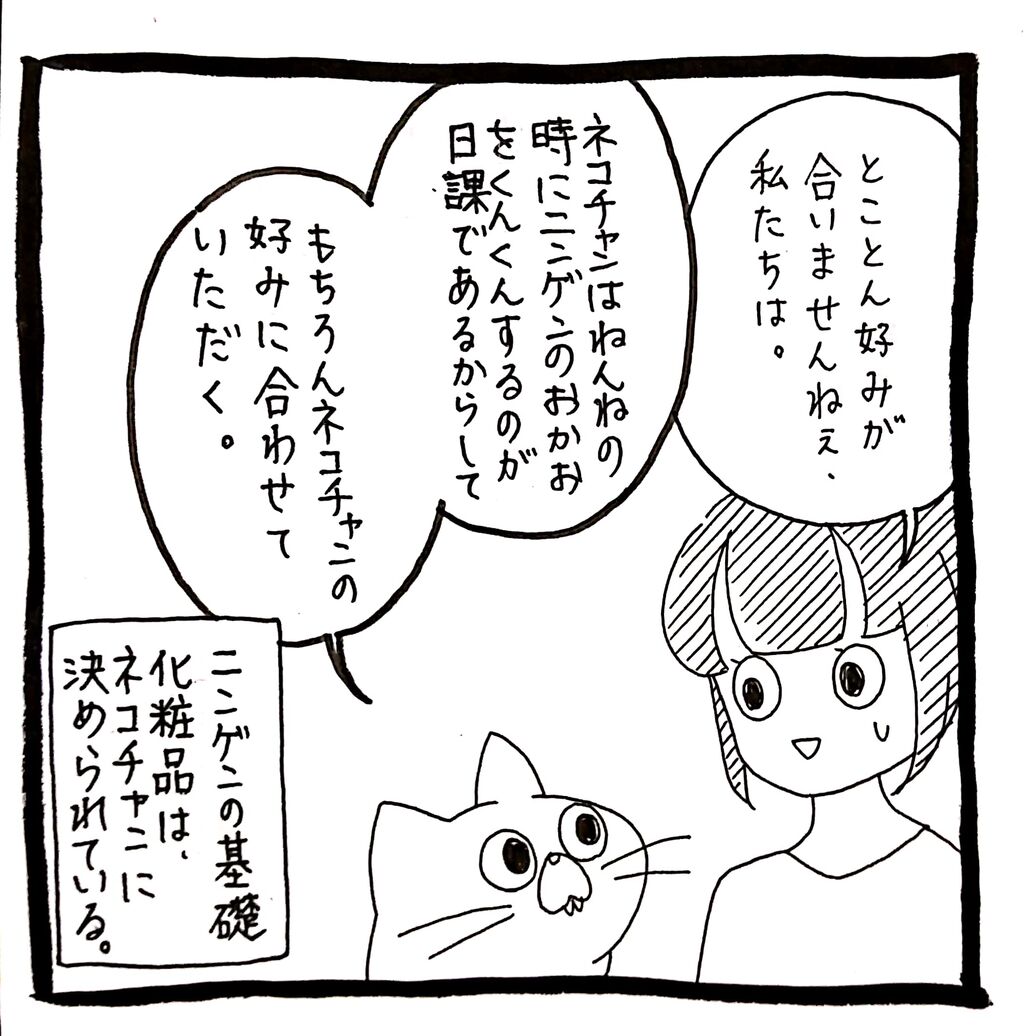 とことん好みが
合いませんねぇ、
私たちは。
ネコチャンはねんねの
時にニンゲンのおかお
をくんくんするのが
日課であるからして
もちろんネコチャンの
好みに合わせて
いただく。
ニンゲンの基礎
化粧品は、
ネコチャンに
決められている。